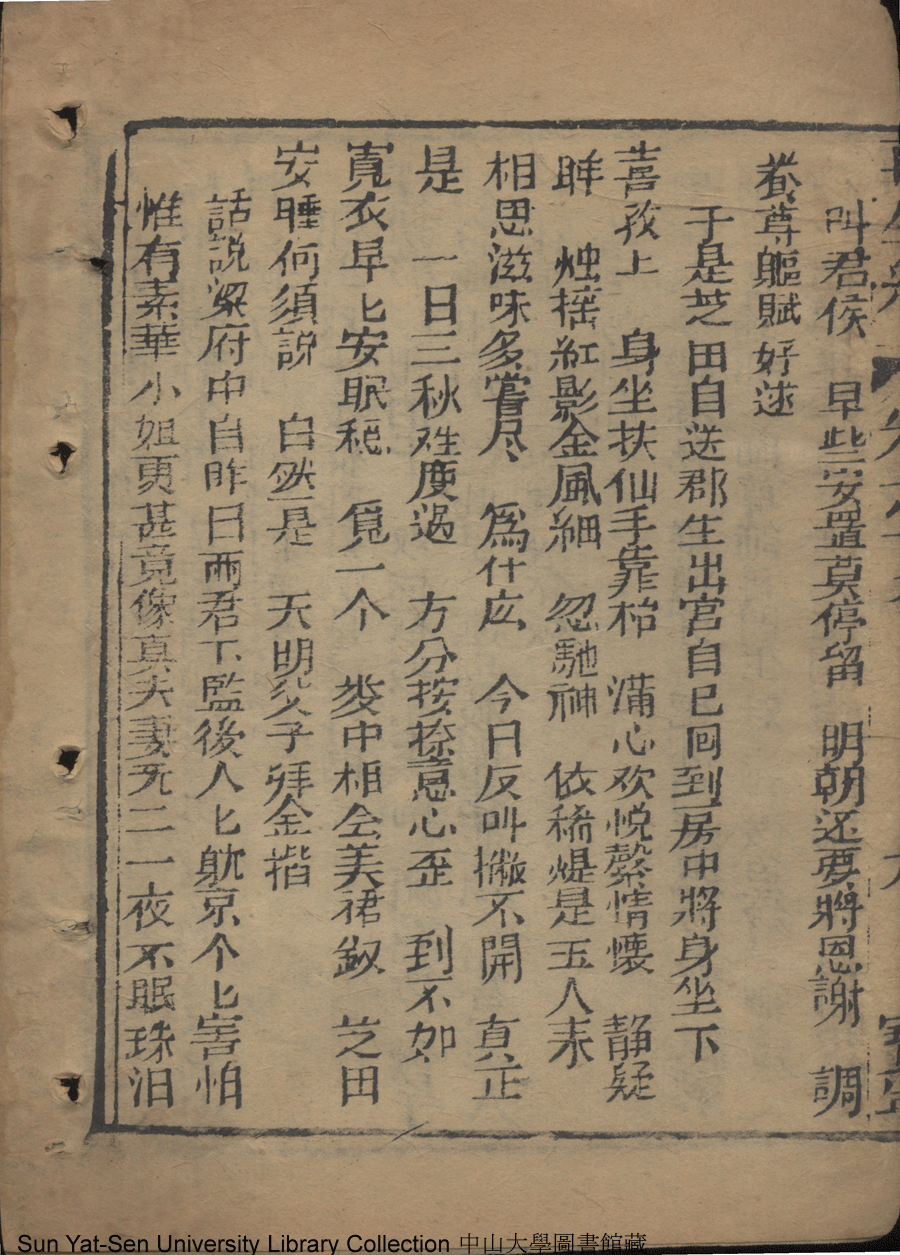 叫君侯　早些安置莫停留　明朝还要將恩謝　調
養尊軀賦好逑
于是芝田自送郡生出宫自已回到房中將身坐下
喜孜上　身坐扶仙手靠枱　滿心欢悦慤情懷　静疑
眸　烛摇紅影金風細　忽馳神　依稀煶是玉人来
相思滋味多嘗尽　爲什庅　今日反叫撇不開　真正
是　一日三秋难度過　方分按捺意心歪　到不如
寛衣早匕安眠稳　覓一个　夢中相会美裙釵　芝田
安睡何須說　自然是　天明父子拜金揩
話說梁府中自昨日兩君下監後人匕躭京个匕害怕
惟有素華小姐更甚竟像真夫妻无二一夜不眠珠汨
Sun Yat-Sen University Library Collection 中山大學圖書館藏